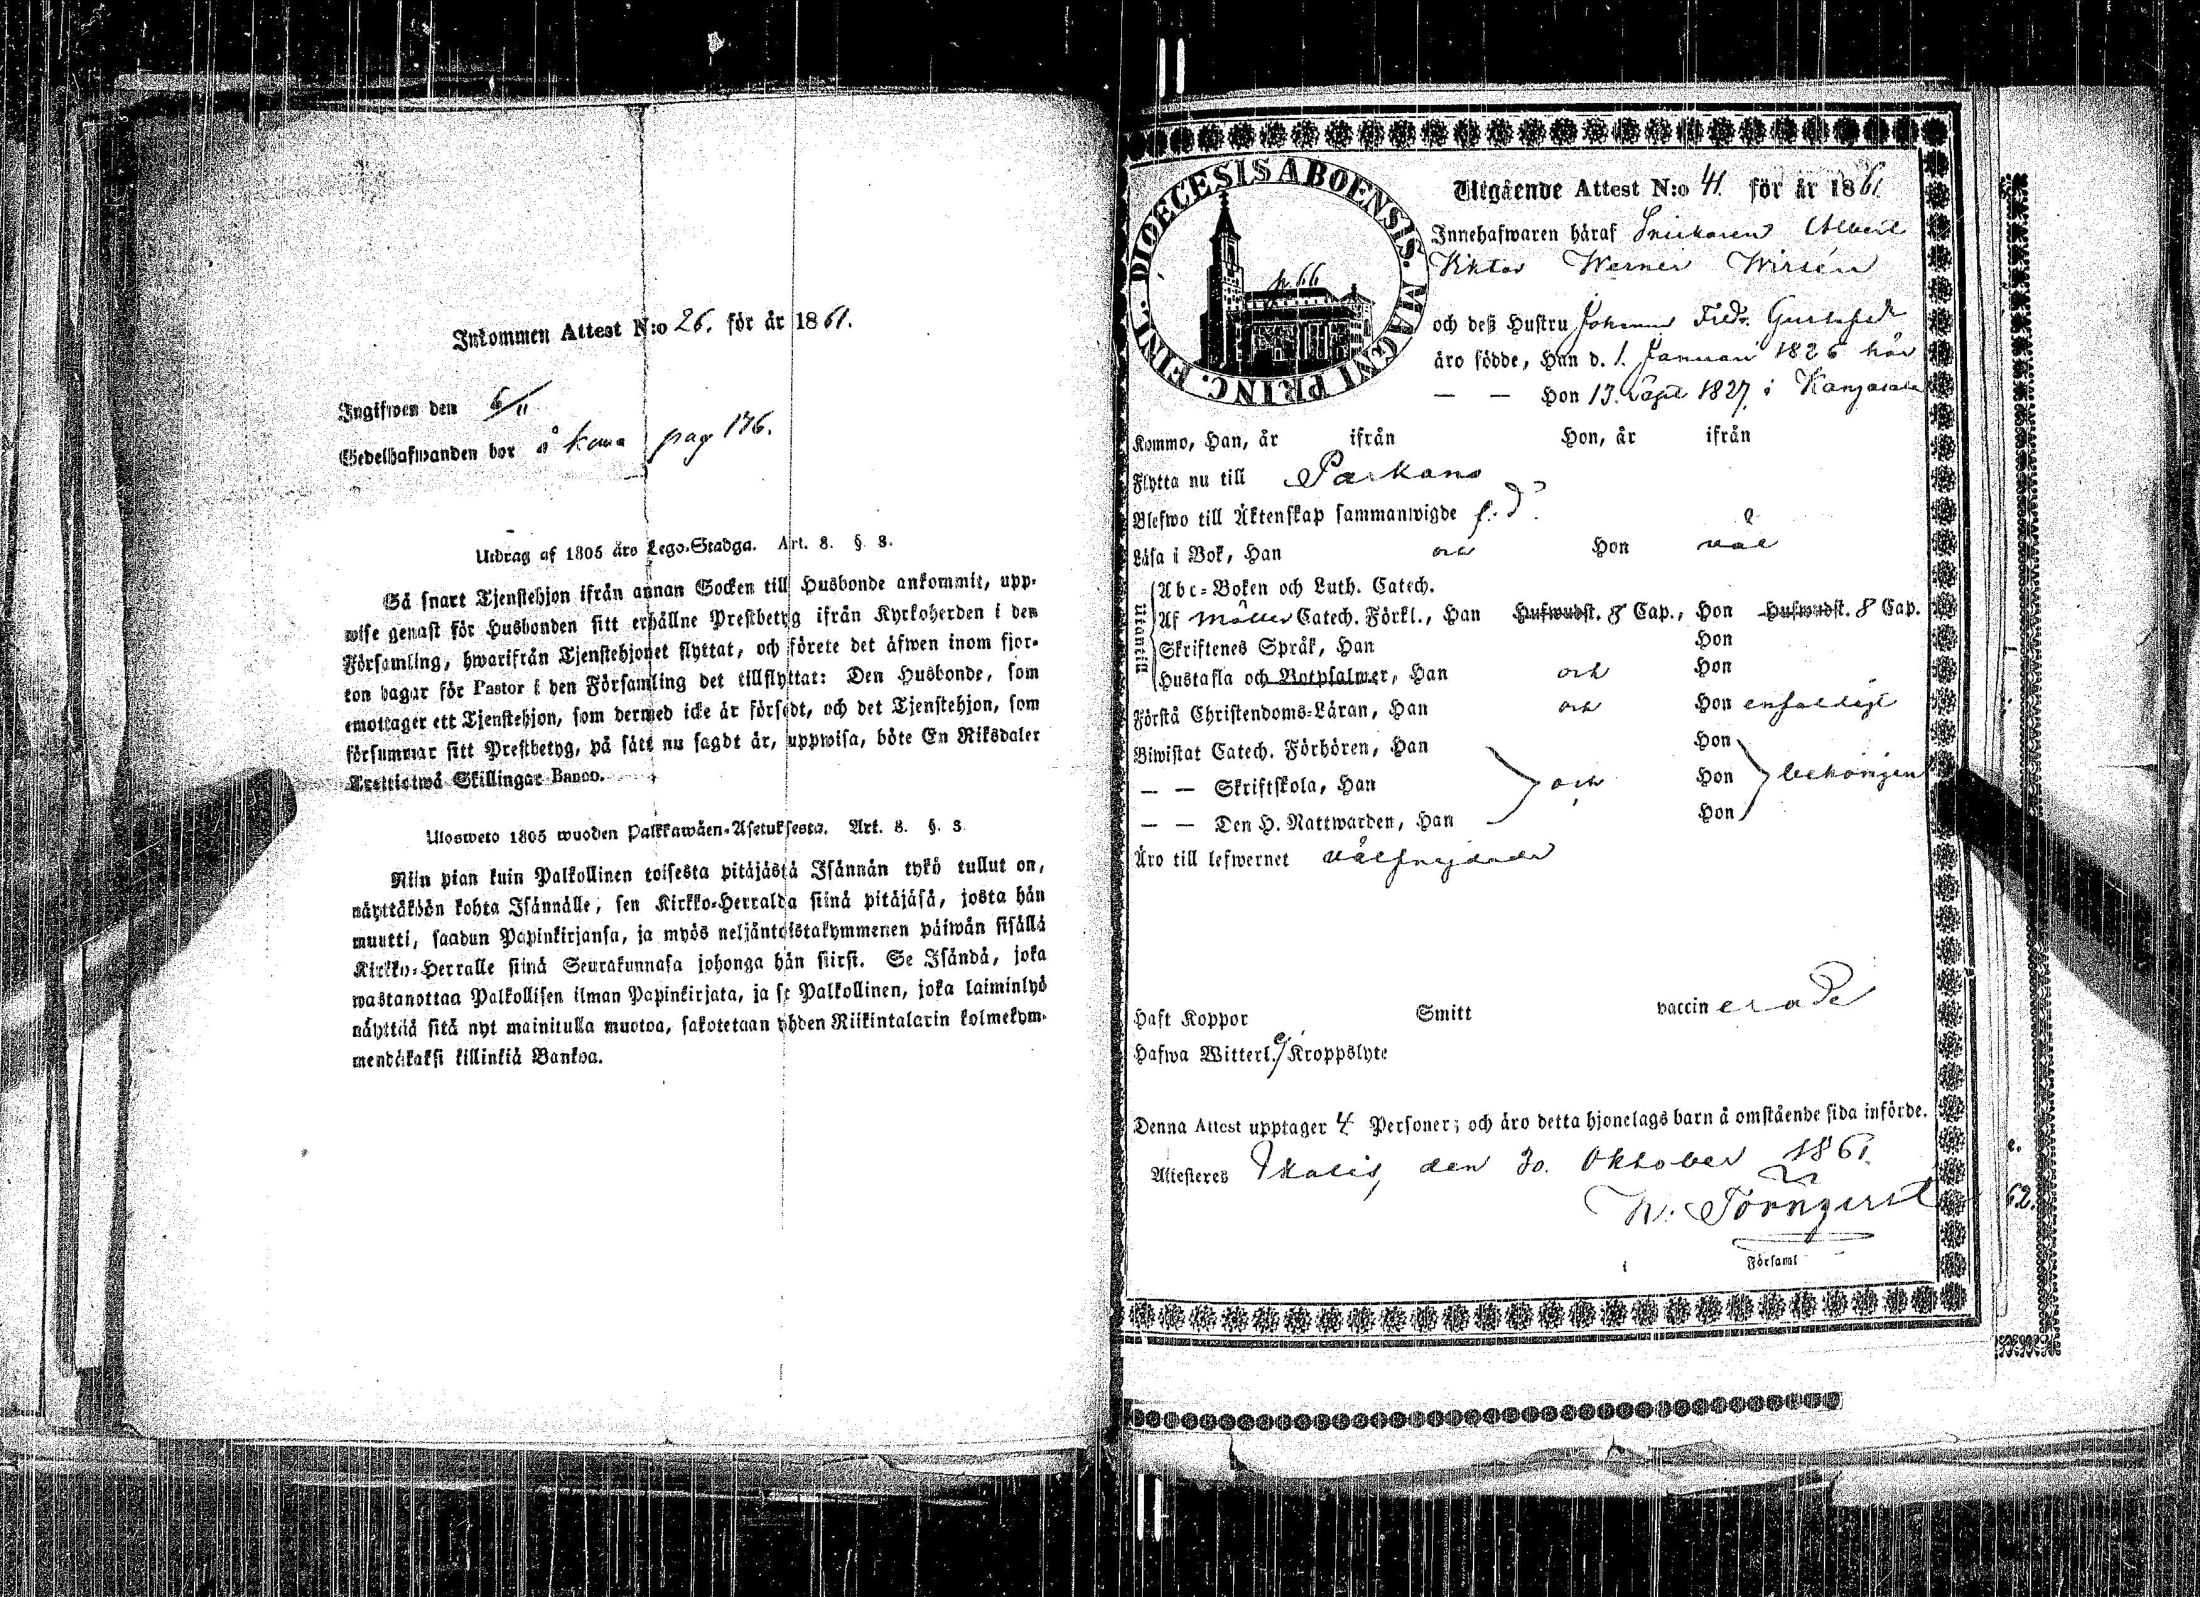 Inkommen Attest N:o 26. för år 1861.
Ingifwen den 6/11
Sedelhafwanden bor å pag 176.
Utdrag af 1805 års Lego-Stadga. Art. 8. §. 8.
Så snart Tjenstehjon ifrån annan Socken till Husbonde ankommit, upp-
wise genast för Husbonden sitt erhållne Prestbetyg ifrån Kyrkoherden i den
Församling, hwarifrån Tjenstehjonet flyttat, och förete det äfwen inom fjor-
ton dagar för Pastor i den Församling det tillflyttat: Den Husbonde, som
emottager ett Tjenstehjon, som dermed icke är försedt, och det Tjenstehjon, som
försummar sitt Prestbetyg, på sätt nu sagdt är, uppwisa, böte En Riksdaler
Trettiotwå Skillingar Banco.
Ulosweto 1805 wuoden Palkkawäen-Asetuksesta. Art. 8. §. 8
Niin pian kuin Palkollinen toisesta pitäjästä Isännän tykö tullut on,
näyttäköön kohta Isännälle, sen Kirkko-Herralda siinä pitäjäsä, josta hän
muutti, saadun Papinkirjansa, ja myös neljäntoistakymmenen päiwän sisällä
Kirkko-Herralle siinä Seurakunnasa johonga hän siirsi. Se Isändä, joka
wastanottaa Palkollisen ilman Papinkirjata, ja se Palkollinen, joka laiminlyö
näyttää sitä nyt mainitulla muotoa, sakotetaan yhden Riikintalarin kolmekym-
mendäkaksi killinkiä Bankoa.
DIOECESIS ABOENSIS. MAGNI PRINC. FINL.
p. 66
Utgående Attest N:o 41. för år 1861.
Innehafwaren häraf Snickaren Albert
Viktor Werner Wirsén
och deß Hustru Johanna Fredr. Gustafsdr
äro födde, Han d. 1. Januari 1826 här
— — Hon 13. Sept 1827. i Kangasala
Kommo, Han, år ifrån Hon, år ifrån
Flytta nu till Parkano
Blefwo till Äktenskap sammanwigde f. d.
Läsa i Bok, Han och Hon väl
Utantill
Abc-Boken och Luth. Catech.
Af Möllers Catech. Förkl., Han Hufwudst. 8 Cap., Hon Hufwudst. 8 Cap.
Skriftenes Språk, Han Hon
Hustafla och Botpsalmer, Han och Hon
Förstå Christendoms-Läran, Han och Hon enfaldigt
Biwistat Catech. Förhören, Han Hon
— — Skriftskola, Han och Hon behörigen
— — Den H. Nattwarden, Han Hon
Äro till lefwernet välfrejdade
Haft Koppor Smitt vaccinerade
Hafwa Witterl. ej Kroppslyte
Denna Attest upptager 4 Personer; och äro detta hjonelags barn å omstående sida införde.
Attesteres Ikalis, den 30. Oktober 1861.
W. Törnqvist
i Församl
62.